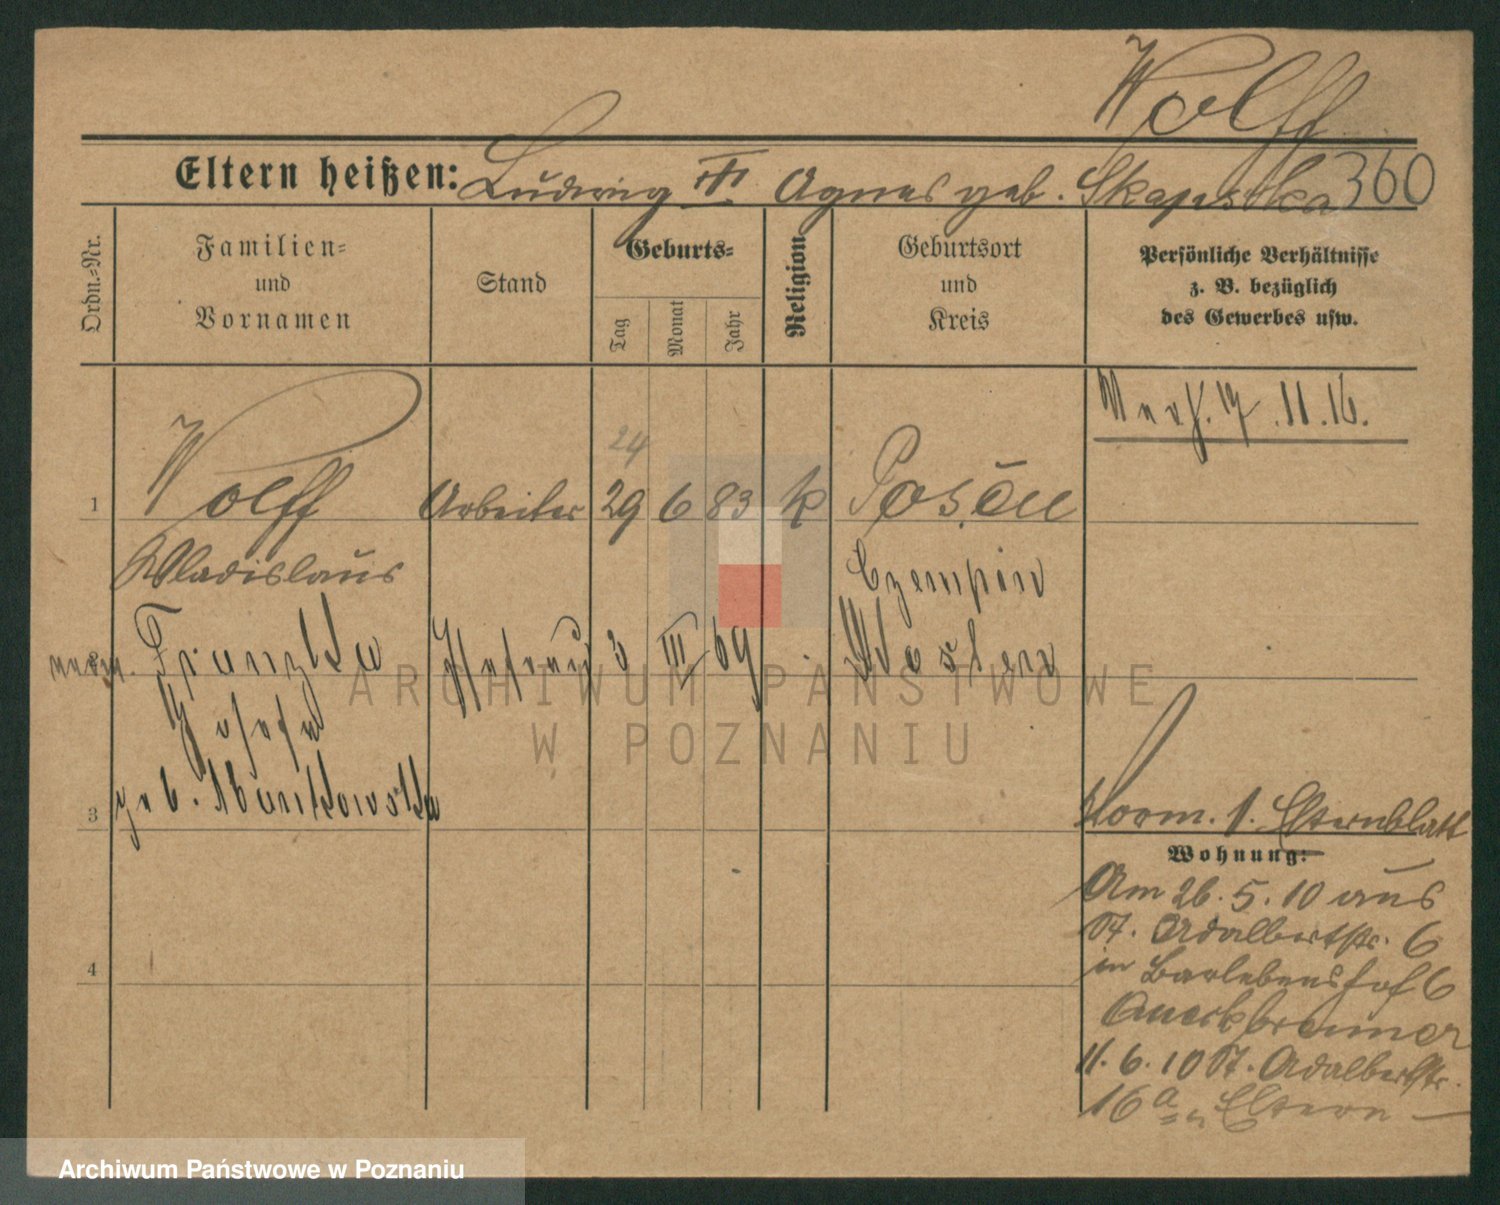 Wolff
Eltern heißen: Ludwig III Agnes geb. Skapska
360
Ordn.=Nr.
Familien=
und
Vornamen
Stand
Geburts=
Tag
Monat
Jahr
Religion
Geburtsort
und
Kreis
Persönliche Verhältnisse
z. B. bezüglich
des Gewerbes usw.
17.11.16.
24
1 Wolff Arbeiter 29 6 83 k Posen
Wladislaus
Czempin
Franziska Ehefrau 3 III 69 Kosten
Josefa
3 geb.
Vorm. 1. Elternblatt
Wohnung:
4
Am 26.5.10 aus
St. Adalbertstr. 6
in Barlebenshof 6
11.6.10 St. Adalbertstr.
16a Eltern
ARCHIWUM PAŃSTWOWE
W POZNANIU
Archiwum Państwowe w Poznaniu